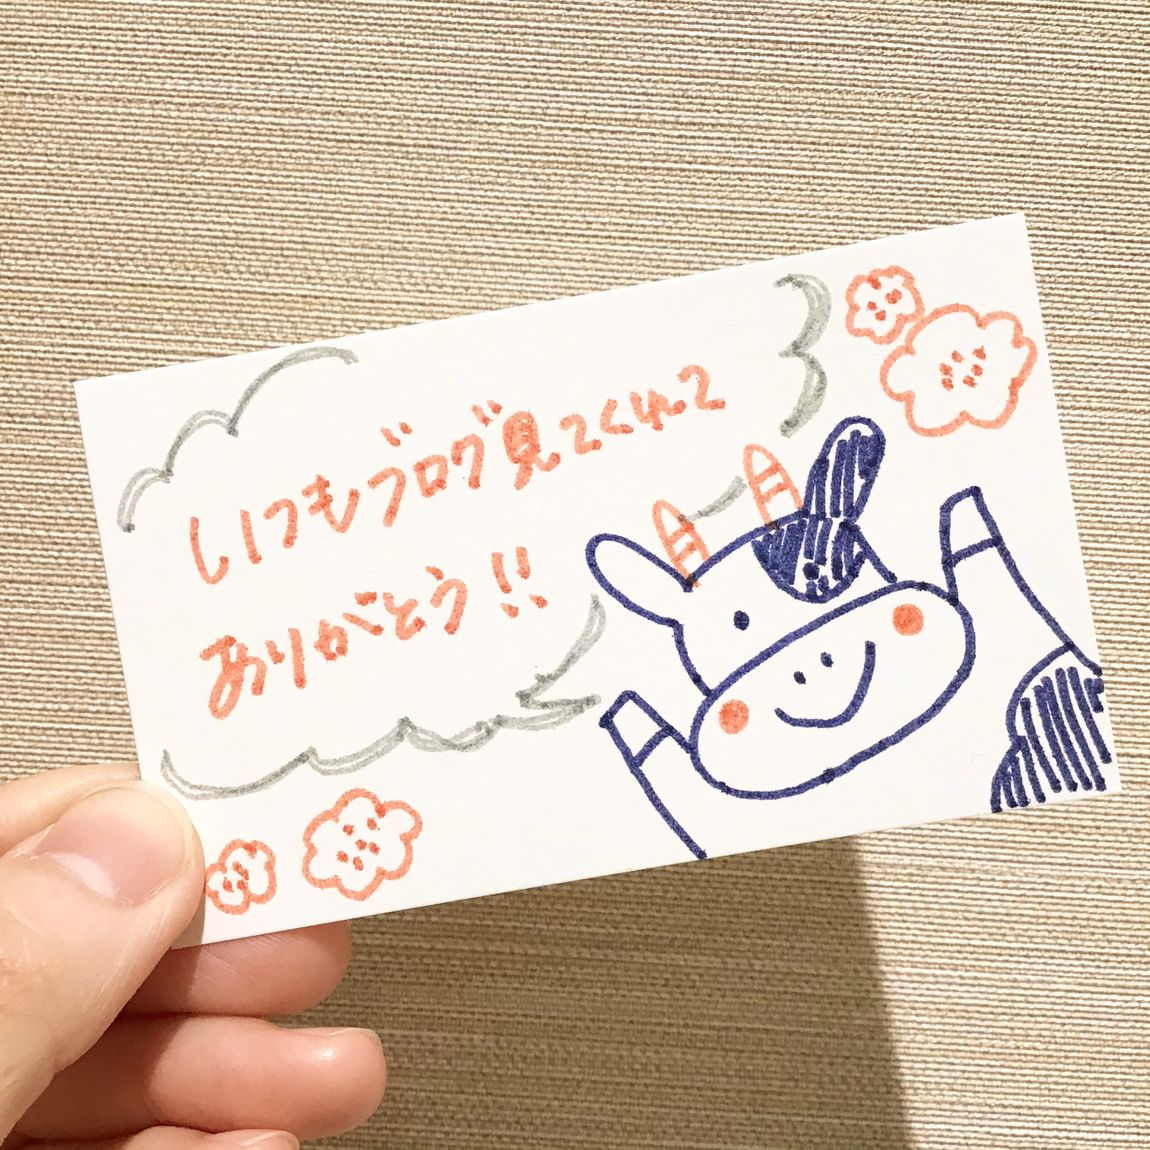 いつもブログ見てくれて
ありがとう!!